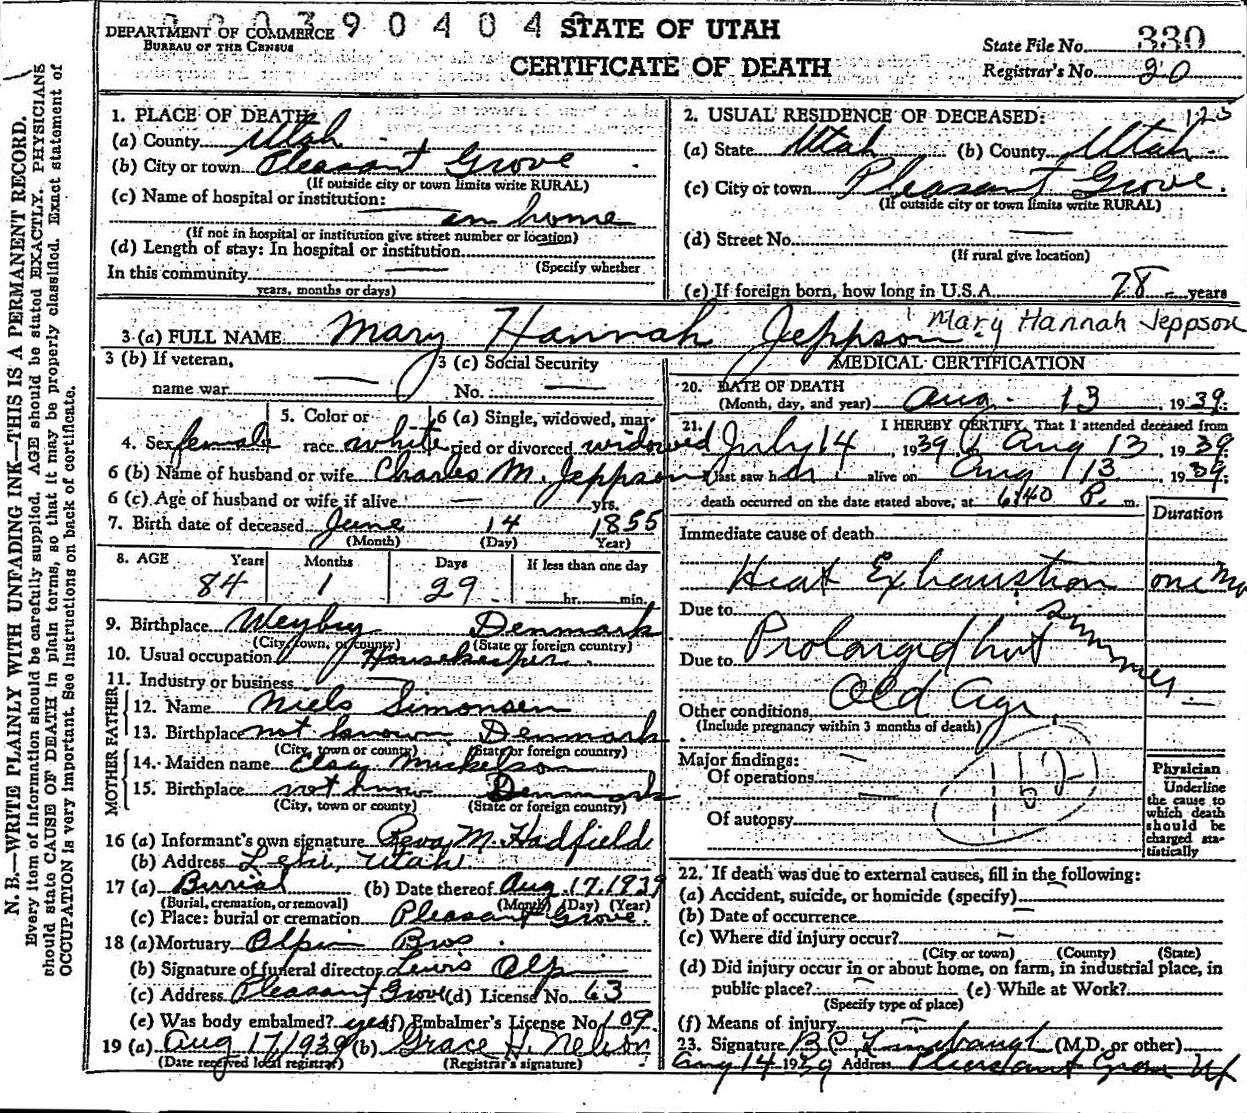 N. B.—WRITE PLAINLY WITH UNFADING INK—THIS IS A PERMANENT RECORD.
Every item of information should be carefully supplied. AGE should be stated EXACTLY. PHYSICIANS
should state CAUSE OF DEATH in plain terms, so that it may be properly classified. Exact statement of
OCCUPATION is very important. See instructions on back of certificate.
DEPARTMENT OF COMMERCE
BUREAU OF THE CENSUS
390404
STATE OF UTAH
CERTIFICATE OF DEATH
State File No. 330
Registrar's No. 20
1. PLACE OF DEATH
(a) County Utah
(b) City or town Pleasant Grove
(If outside city or town limits write RURAL)
(c) Name of hospital or institution:
in home
(If not in hospital or institution give street number or location)
(d) Length of stay: In hospital or institution
(Specify whether
In this community —
years, months or days)
2. USUAL RESIDENCE OF DECEASED: 125
(a) State Utah (b) County Utah
(c) City or town Pleasant Grove.
(If outside city or town limits write RURAL)
(d) Street No. —
(If rural give location)
(e) If foreign born, how long in U.S.A. 78 years
3 (a) FULL NAME Mary Hannah Jeppson Mary Hannah Jeppson
3 (b) If veteran,
name war —
3 (c) Social Security
No. —
4. Sex female
5. Color or
race white
6 (a) Single, widowed, mar-
ried or divorced widowed
6 (b) Name of husband or wife Charles M. Jeppson
6 (c) Age of husband or wife if alive — yrs.
7. Birth date of deceased June 14 1855
(Month) (Day) (Year)
8. AGE Years Months Days If less than one day
84 1 29 hr. min.
9. Birthplace Denmark
(City, town, or county) (State or foreign country)
10. Usual occupation Housekeeper.
11. Industry or business —
FATHER
12. Name Niels Simonsen
13. Birthplace not known Denmark
(City, town or county) (State or foreign country)
MOTHER
14. Maiden name Elsey Mickelson
15. Birthplace not know Denmark
(City, town or county) (State or foreign country)
16 (a) Informant's own signature Reva M. Hadfield
(b) Address Lehi, Utah
17 (a) Burial (b) Date thereof Aug. 17. 1939
(Burial, cremation, or removal) (Month) (Day) (Year)
(c) Place: burial or cremation Pleasant Grove.
18 (a) Mortuary Alpin Bros.
(b) Signature of funeral director Lewis Alpin
(c) Address Pleasant Grove (d) License No. 63
(e) Was body embalmed? yes (f) Embalmer's License No. 109
19 (a) Aug 17, 1939 (b) Grace H. Nelson
(Date received local registrar) (Registrar's signature)
MEDICAL CERTIFICATION
20. DATE OF DEATH
(Month, day, and year) Aug. 13, 1939.
21. I HEREBY CERTIFY, That I attended deceased from
July 14, 1939 to Aug 13, 1939
I last saw her alive on Aug 13, 1939
death occurred on the date stated above, at 6:40 P. m.
Duration
Immediate cause of death
Heat Exhaustion one mo
Due to
Due to Prolonged hot summer.
Other conditions Old Age. —
(Include pregnancy within 3 months of death)
Major findings:
Of operations —
Of autopsy
Physician
Underline
the cause to
which death
should be
charged sta-
tistically
22. If death was due to external causes, fill in the following:
(a) Accident, suicide, or homicide (specify) —
(b) Date of occurrence —
(c) Where did injury occur? —
(City or town) (County) (State)
(d) Did injury occur in or about home, on farm, in industrial place, in
public place? — (e) While at Work?
(Specify type of place)
(f) Means of injury —
23. Signature B.C. Linebaugh (M.D. or other)
Aug 14 1939 Address Pleasant Grove Ut